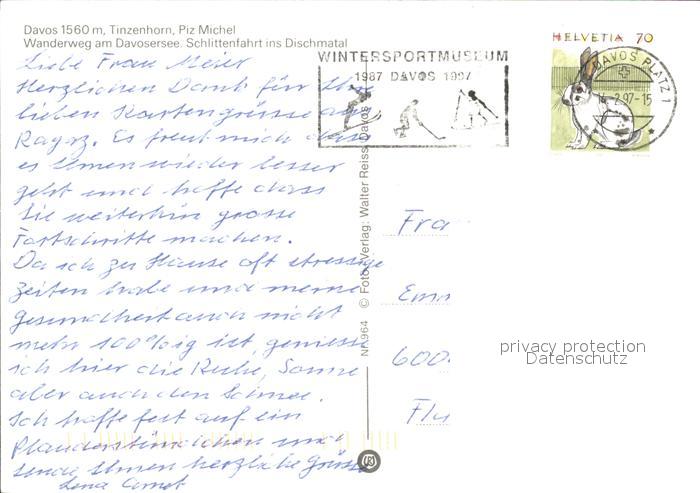 Davos 1560 m, Tinzenhorn, Piz Michel
Wanderweg am Davosersee. Schlittenfahrt ins Dischmatal
Liebe Frau Meier
Herzlichen Dank für Ihre
lieben Kartengrüsse aus
Ragaz. Es freut mich dass
es Ihnen wieder besser
geht und hoffe dass
Sie weiterhin grosse
Fortschritte machen.
Da ich zu Hause oft stressige
Zeiten habe und meine
Gesundheit auch nicht
mehr 100%ig ist, geniesse
ich hier die Ruhe, Sonne
aber auch den Schnee.
Ich hoffe fest auf ein
Plauderstündchen und
sende Ihnen herzliche Grüsse
Lena
WINTERSPORTMUSEUM
1987 DAVOS 1997
HELVETIA 70
DAVOS PLATZ 1
2.97-15
Nr. 964 © Foto + Verlag: Walter Reiss, Davos
Fra
Emm
600
Flu
privacy protection
Datenschutz